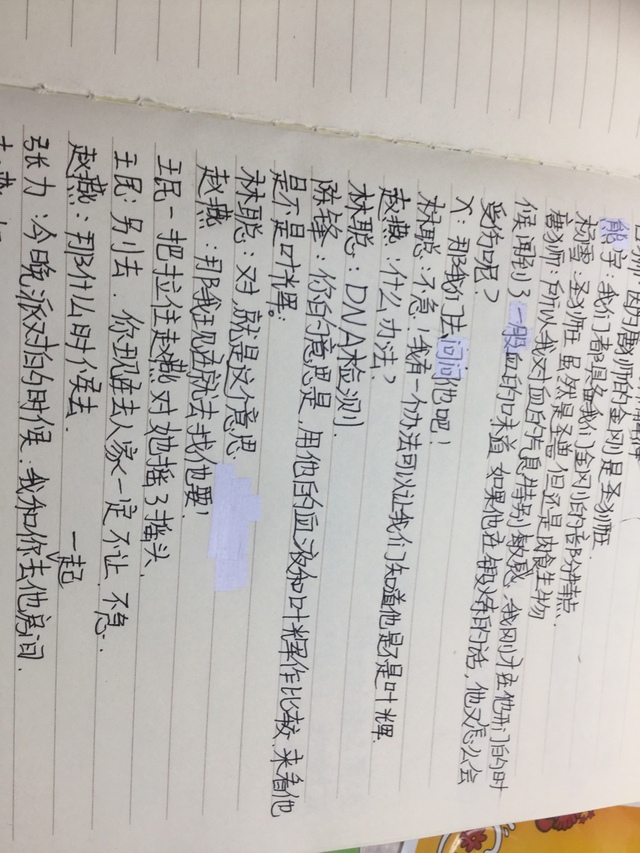 因为唐狮的金刚是圣狮狂
熊宇：我们都具备我们金刚的部分特点.
杨雪：圣狮狂虽然是圣兽但还是肉食生物
唐狮：所以我对血的气息特别敏感.我刚才在他开门的时
候闻到了一股血的味道 如果他在锻炼的话，他又怎么会
受伤呢？
X：那我们去问问他吧！
林聪：不急！我有一个办法可以让我们知道他是不是叶辉.
赵燕：什么办法？
林聪：DNA检测.
陈锋：你的意思是，用他的血液和叶辉作比较、来看他
是不是叶辉。
林聪：对，就是这个意思.
赵燕：那我现在就去找他要！
王民一把拉住赵燕对她摇了摇头.
王民：别去．你现在去人家一定不让.不急..
赵燕：那什么时候去.
张力：今晚派对的时候.我和你一起去他房间.